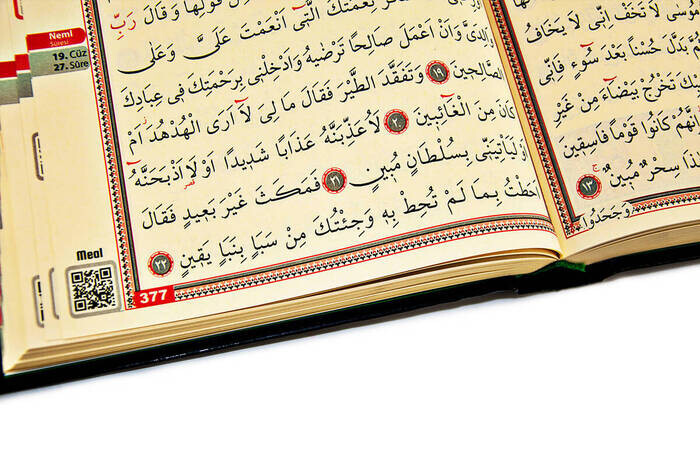 مُوسٰى لَا تَخَفْ اِنّٖى لَا يَخَافُ
بَدَّلَ حُسْنًا بَعْدَ سُٓوءٍ فَاِنّٖى
تَخْرُجْ بَيْضَٓاءَ مِنْ غَيْرِ
اِنَّهُمْ كَانُوا قَوْمًا فَاسِقٖينَ
هٰذَا سِحْرٌ مُبٖينٌ ۚ ١٣
وَجَحَدُوا
قَوْلِهَا وَقَالَ رَبِّ
نِعْمَتَكَ الَّتٖٓى اَنْعَمْتَ عَلَىَّ وَعَلٰى
وَالِدَىَّ وَاَنْ اَعْمَلَ صَالِحًا تَرْضٰيهُ وَاَدْخِلْنٖى بِرَحْمَتِكَ فٖى عِبَادِكَ
الصَّالِحٖينَ ١٩ وَتَفَقَّدَ الطَّيْرَ فَقَالَ مَا لِىَ لَٓا اَرَى الْهُدْهُدَ اَمْ
كَانَ مِنَ الْغَٓائِبٖينَ ٢٠ لَاُعَذِّبَنَّهُ عَذَابًا شَدٖيدًا اَوْ لَا۬اَذْبَحَنَّهُٓ
اَوْ لَيَاْتِيَنّٖى بِسُلْطَانٍ مُبٖينٍ ٢١ فَمَكَثَ غَيْرَ بَعٖيدٍ فَقَالَ
اَحَطْتُ بِمَا لَمْ تُحِطْ بِهٖ وَجِئْتُكَ مِنْ سَبَاٍ بِنَبَاٍ يَقٖينٍ ٢٢
Neml
Sûresi
19. Cüz
27. Sûre
Meal
377